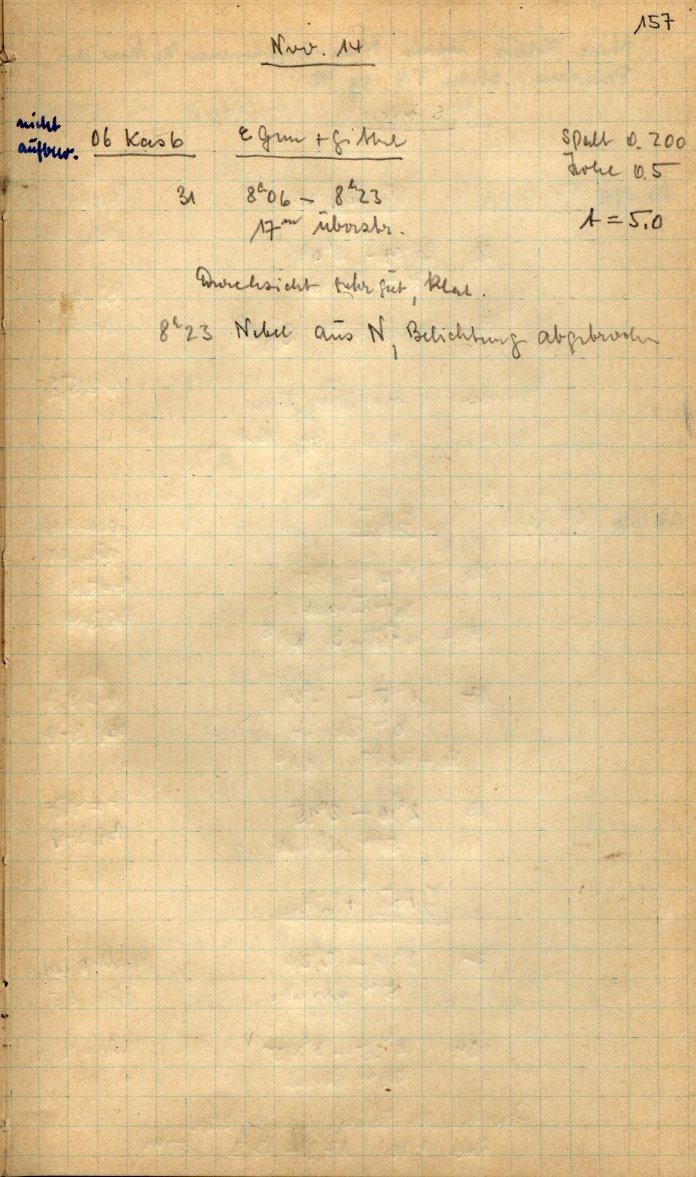 157
Nov. 14
nicht
aufbew.
06 Kas b
Spalt 0.200
Höhe 0.5
31 8ʰ06 – 8ʰ23
17ᵐ überstr.
t = 5.0
Durchsicht sehr gut, klar.
8ʰ23 Nebel aus N, Belichtung abgebrochen